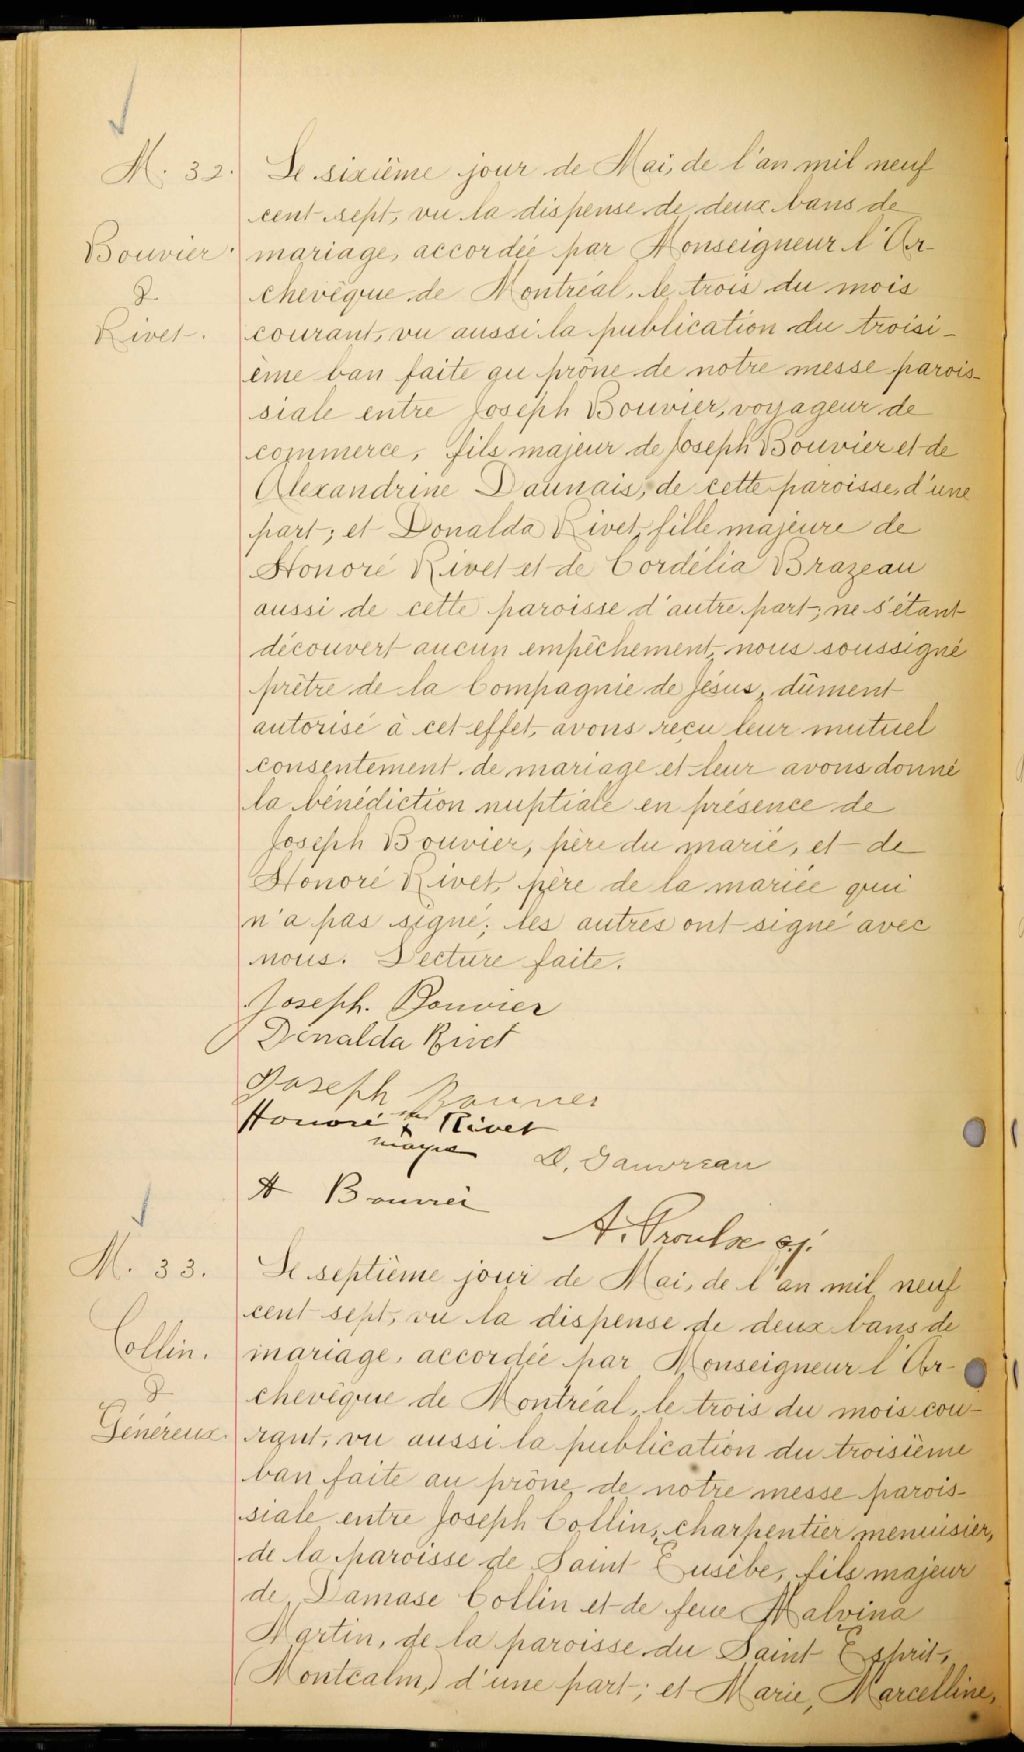 M. 32.
Bouvier
&
Rivet.
Le sixième jour de Mai, de l'an mil neuf
cent sept, vu la dispense de deux bans de
mariage, accordée par Monseigneur l'Ar-
chevêque de Montréal, le trois du mois
courant, vu aussi la publication du troisi-
ème ban faite au prône de notre messe parois-
siale entre Joseph Bouvier, voyageur de
commerce, fils majeur de Joseph Bouvier et de
Alexandrine Daunais, de cette paroisse, d'une
part; et Donalda Rivet, fille majeure de
Honoré Rivet et de Cordélia Brazeau
aussi de cette paroisse d'autre part; ne s'étant
découvert aucun empêchement, nous soussigné
prêtre de la Compagnie de Jésus, dûment
autorisé à cet effet, avons reçu leur mutuel
consentement de mariage et leur avons donné
la bénédiction nuptiale en présence de
Joseph Bouvier, père du marié, et de
Honoré Rivet, père de la mariée qui
n'a pas signé; les autres ont signé avec
nous. Lecture faite.
Joseph. Bouvier
Donalda Rivet
Joseph Bouvier
Honoré sa + Rivet
marque
D. Gauvreau
A Bouvier
A. Proulx s.j.
M. 33.
Collin.
&
Généreux.
Le septième jour de Mai, de l'an mil neuf
cent sept, vu la dispense de deux bans de
mariage, accordée par Monseigneur l'Ar-
chevêque de Montréal, le trois du mois cou-
rant, vu aussi la publication du troisième
ban faite au prône de notre messe parois-
siale entre Joseph Collin, charpentier menuisier,
de la paroisse de Saint Eusèbe, fils majeur
de Damase Collin et de feue Malvina
Martin, de la paroisse du Saint Esprit,
(Montcalm,) d'une part; et Marie, Marcelline,